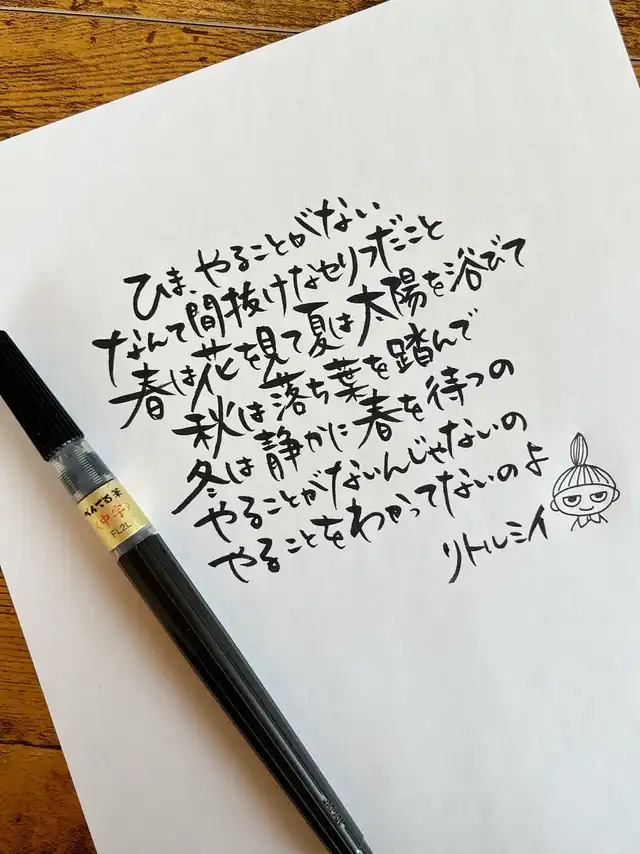 ひま、やることがない
なんて間抜けなセリフだこと
春は花を見て夏は太陽を浴びて
秋は落ち葉を踏んで
冬は静かに春を待つの
やることがないんじゃないの
やることをわかってないのよ
リトルミイ
ぺんてる筆
〈中字〉
FL2L